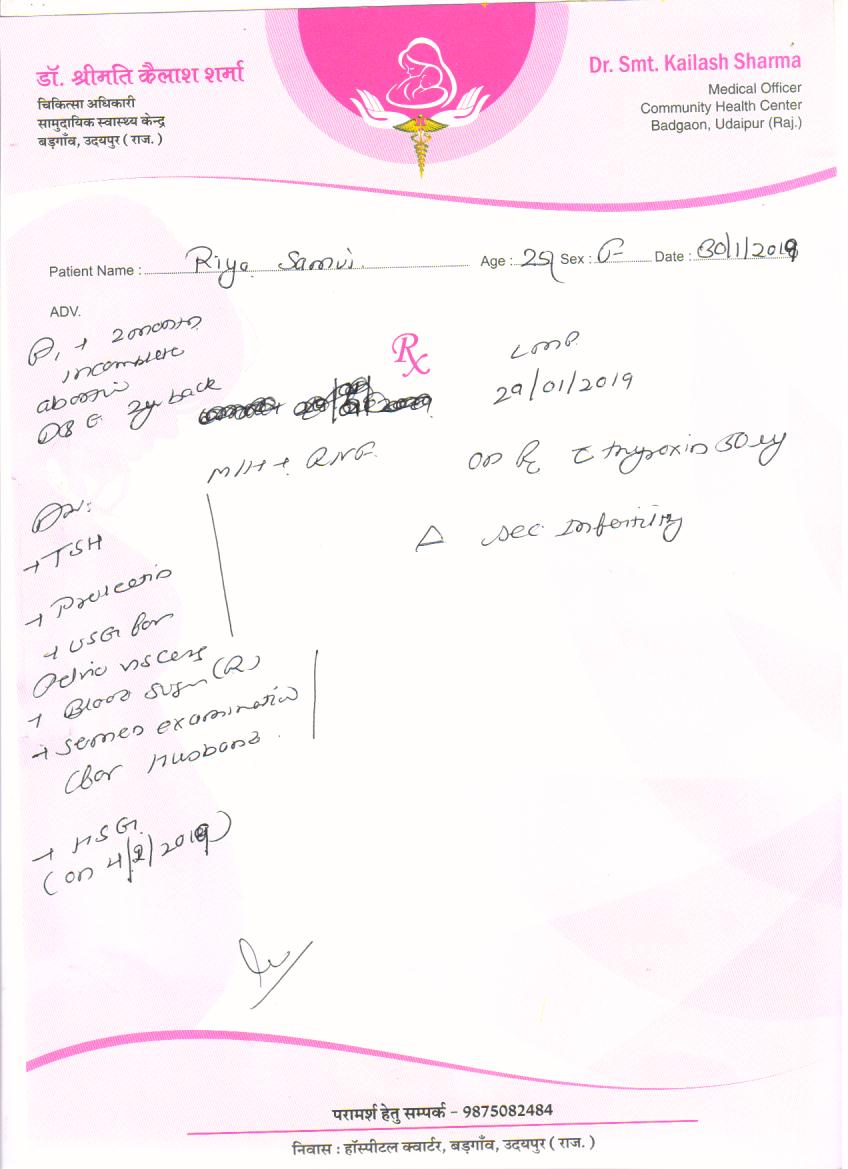 डॉ. श्रीमति कैलाश शर्मा
चिकित्सा अधिकारी
सामुदायिक स्वास्थ्य केन्द्र
बड़गाँव, उदयपुर ( राज. )
Dr. Smt. Kailash Sharma
Medical Officer
Community Health Center
Badgaon, Udaipur (Raj.)
Patient Name : Riya Age : 29 Sex : F Date : 30/1/2019
ADV.
P1 + 2 month
incomplete
D&C 2y back
Rx
LMP.
29/01/2019
M/H +
on Rx c thyroxin
Δ sec. Infertility
→ TSH
→ Prolactin
→ USG for
Pelvic viscera
→ Blood Sugar (R)
→ semen examination
(for Husband
→ HSG.
(on 4/2/2019)
परामर्श हेतु सम्पर्क – 9875082484
निवास : हॉस्पीटल क्वार्टर, बड़गाँव, उदयपुर ( राज. )